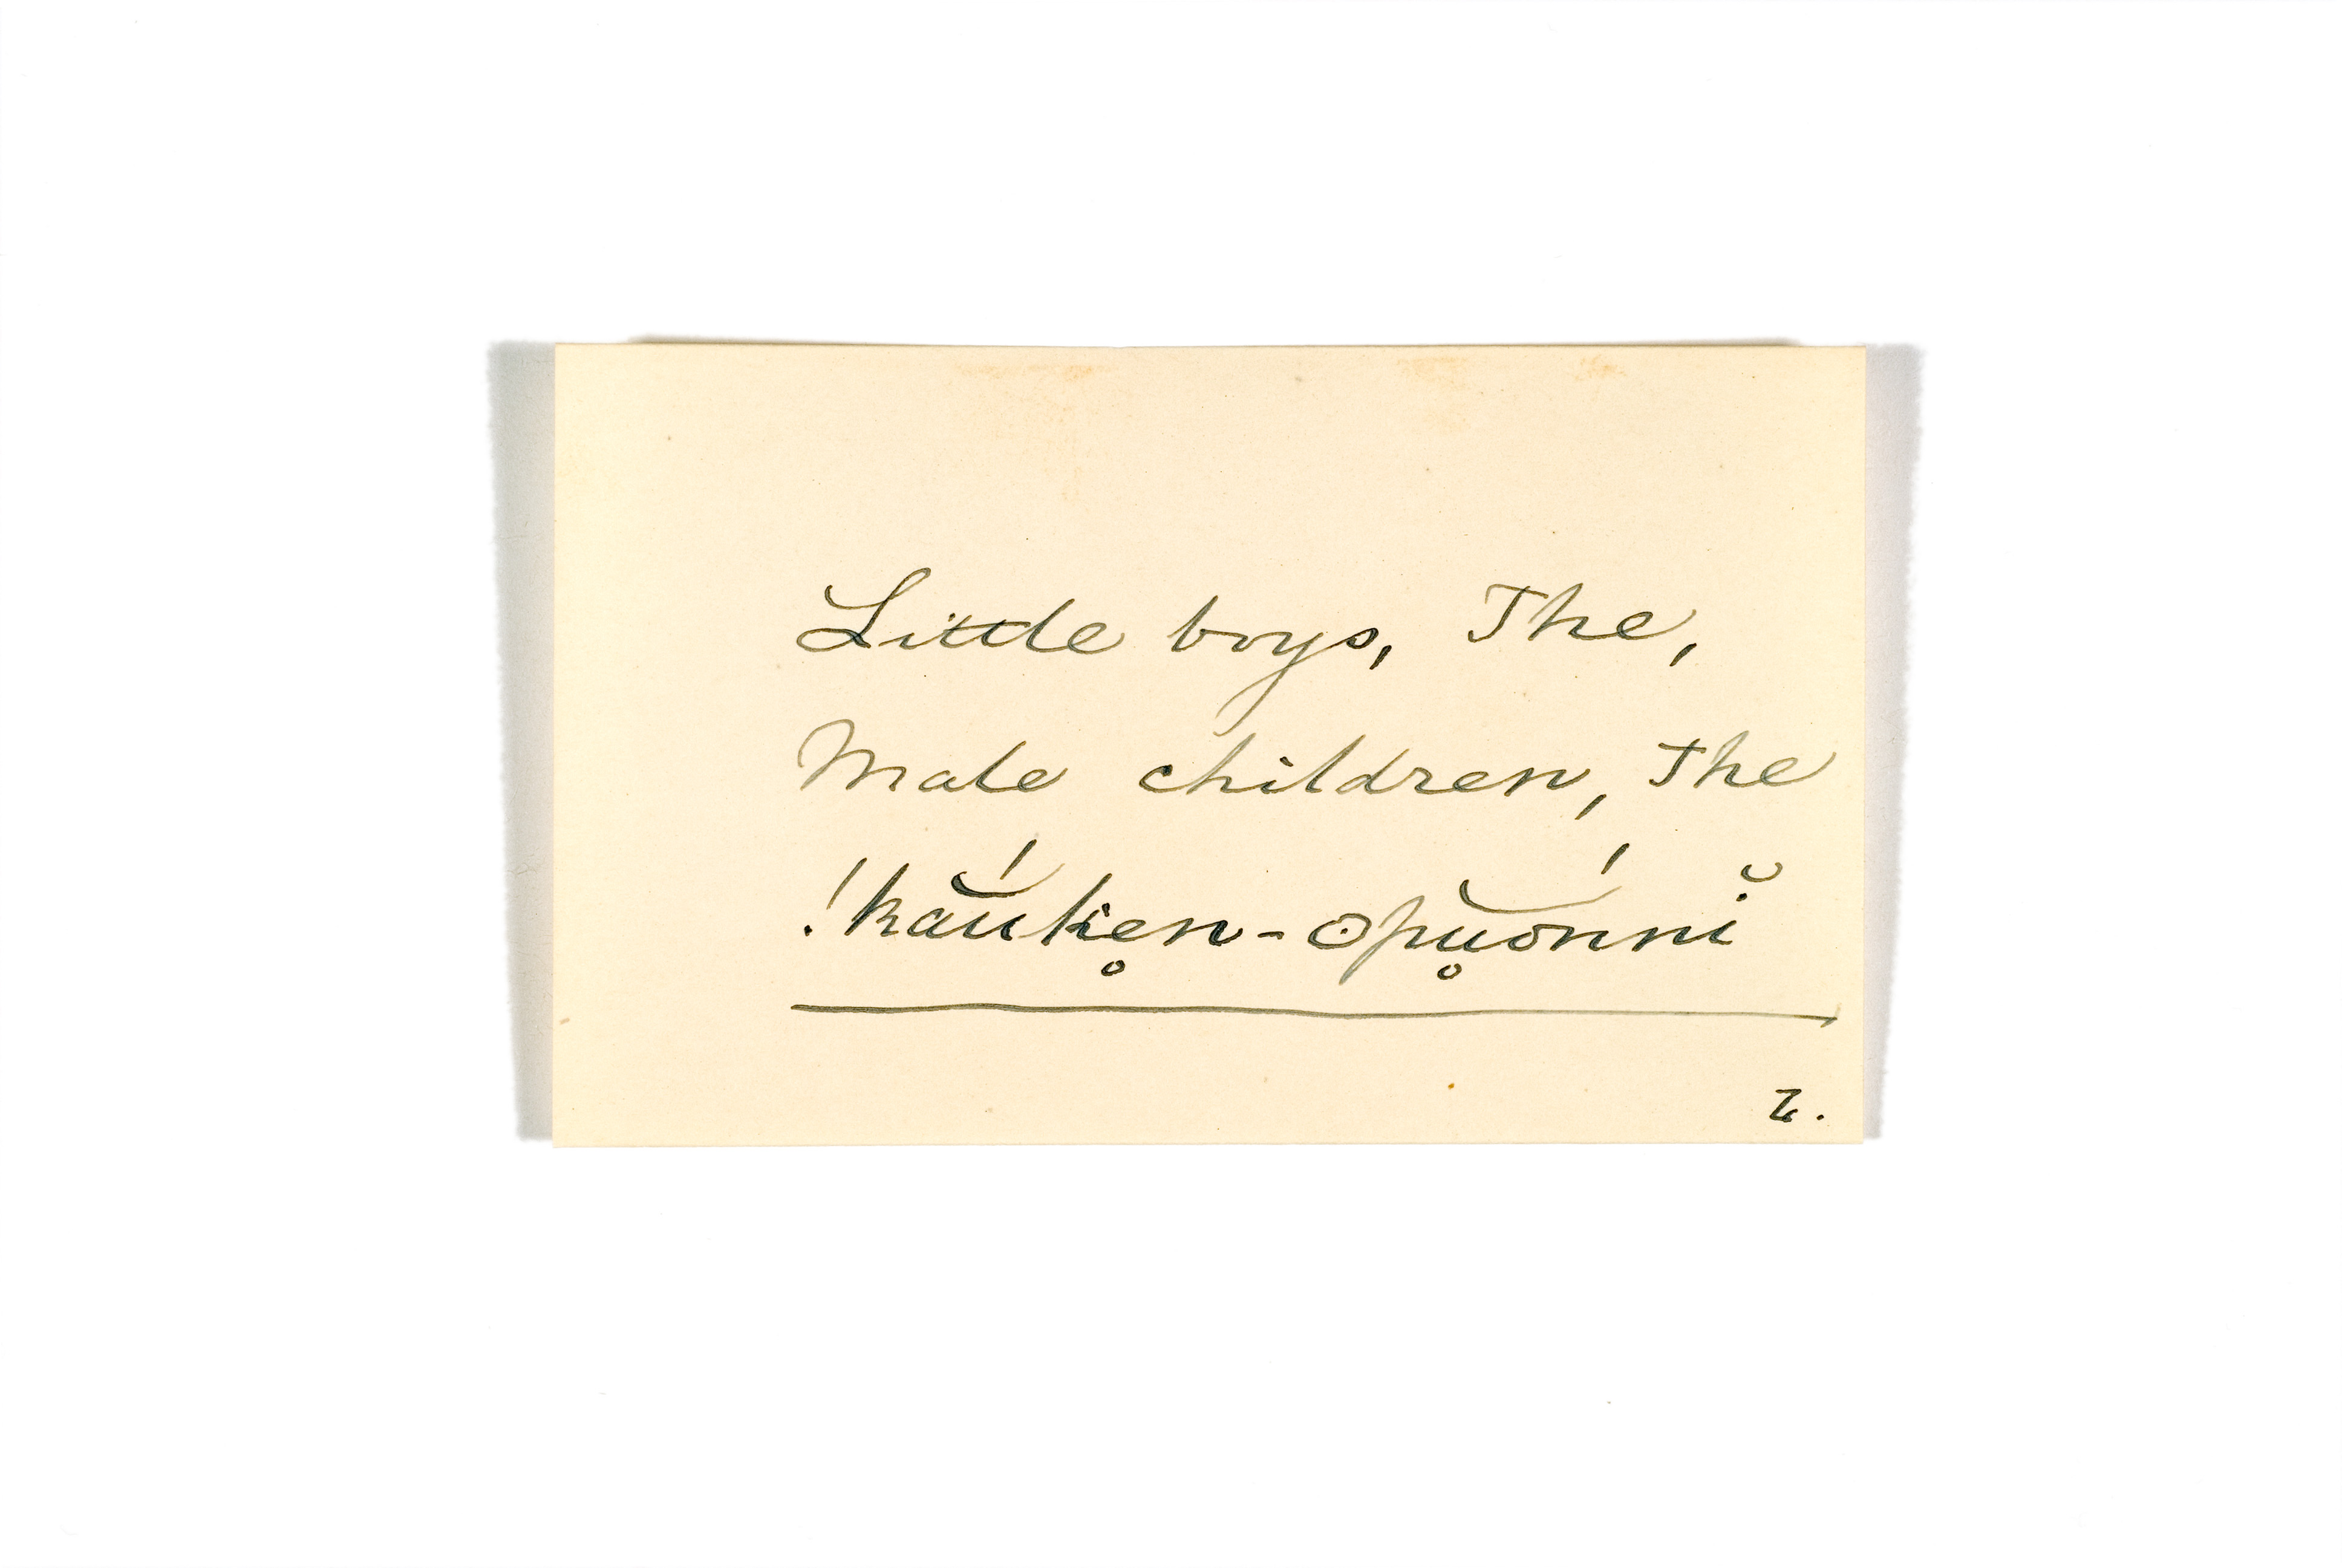 Little boys, The,
Male children, The
!kắŭken̥-opŭ̥ónnĭ
Z.